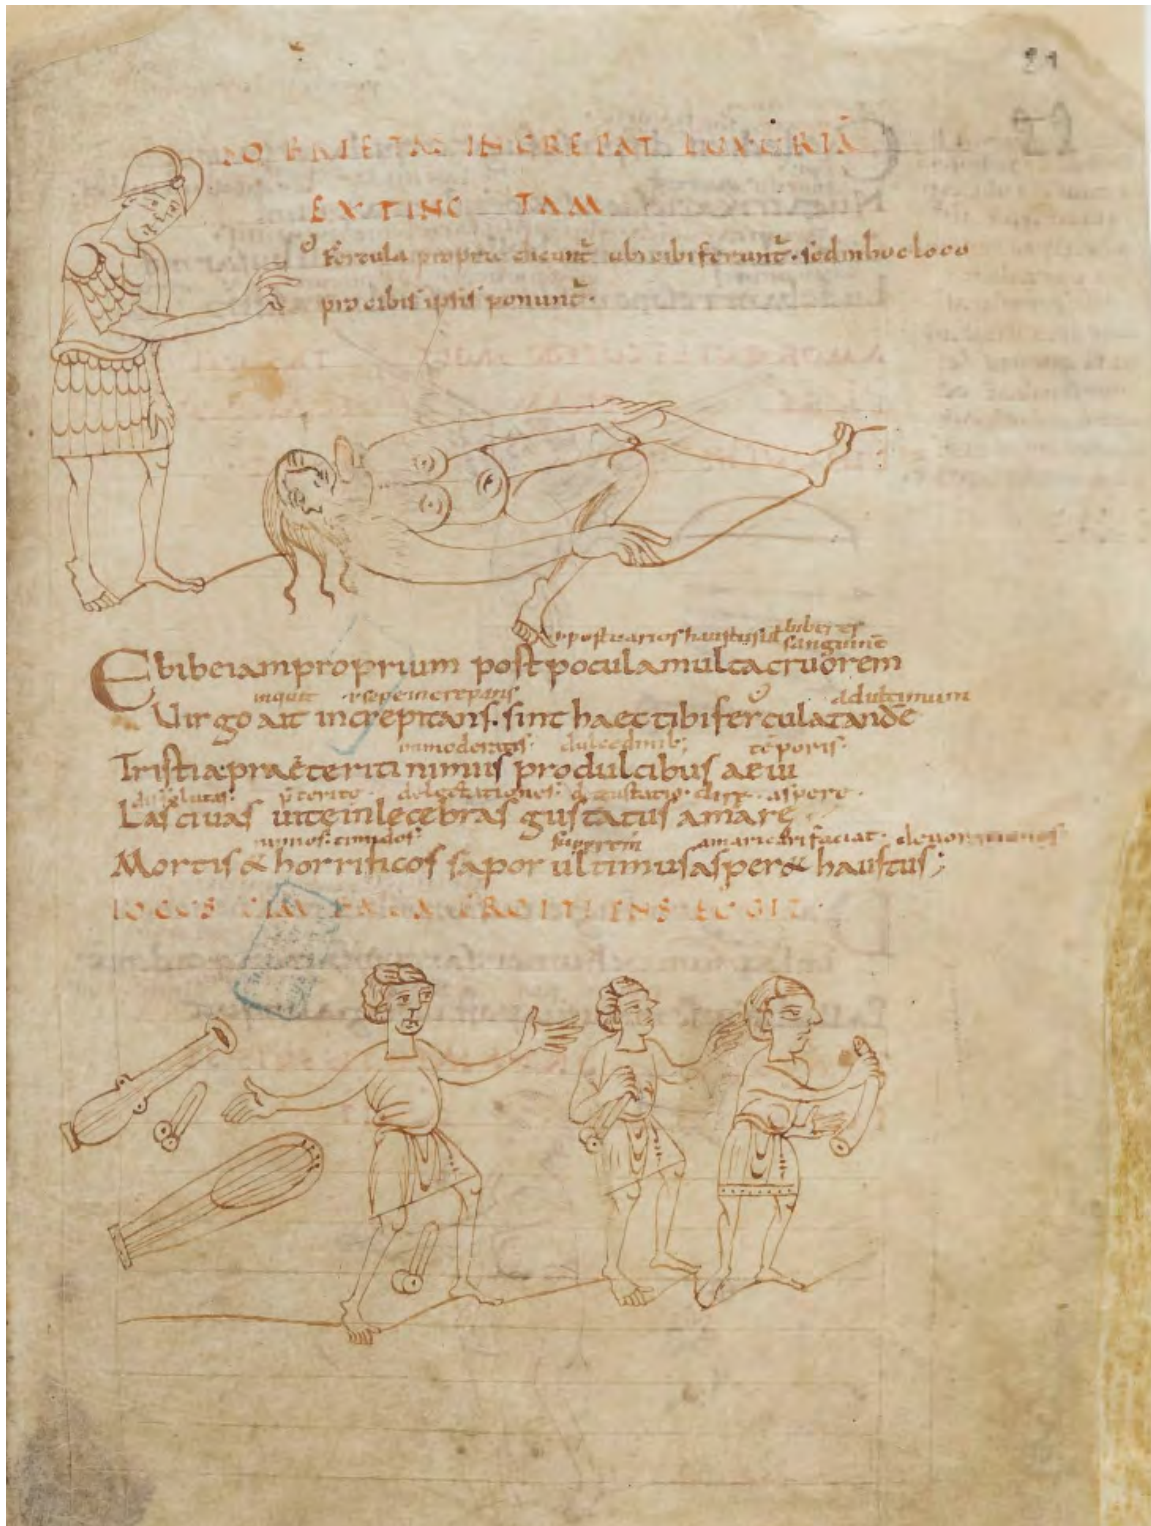 SOBRIETAS INCREPAT LUXURIĀ
EXTINC TAM
Fercula proprie dicunt̄ ubi cibi ferunt̄. sed in hoc loco
pro cibis ipsis ponunt̄.
post varios haustus ut biberes
sanguinē
Ebibe iam proprium post pocula multa cruorem
inquit sepe increpans ad ultimum
Virgo ait increpitans. sint haec tibi fercula tandē
inmoderatis. dulcedinib; tēporis.
Tristia praeteriti nimiis pro dulcibus aevi
delectationes. aspere.
Lascivas vite inlecebras gustatus amare
timidos amaricari faciat. devorationes
Mortis & horrificos sapor ultimus asper& haustus;
IOCUS CIM